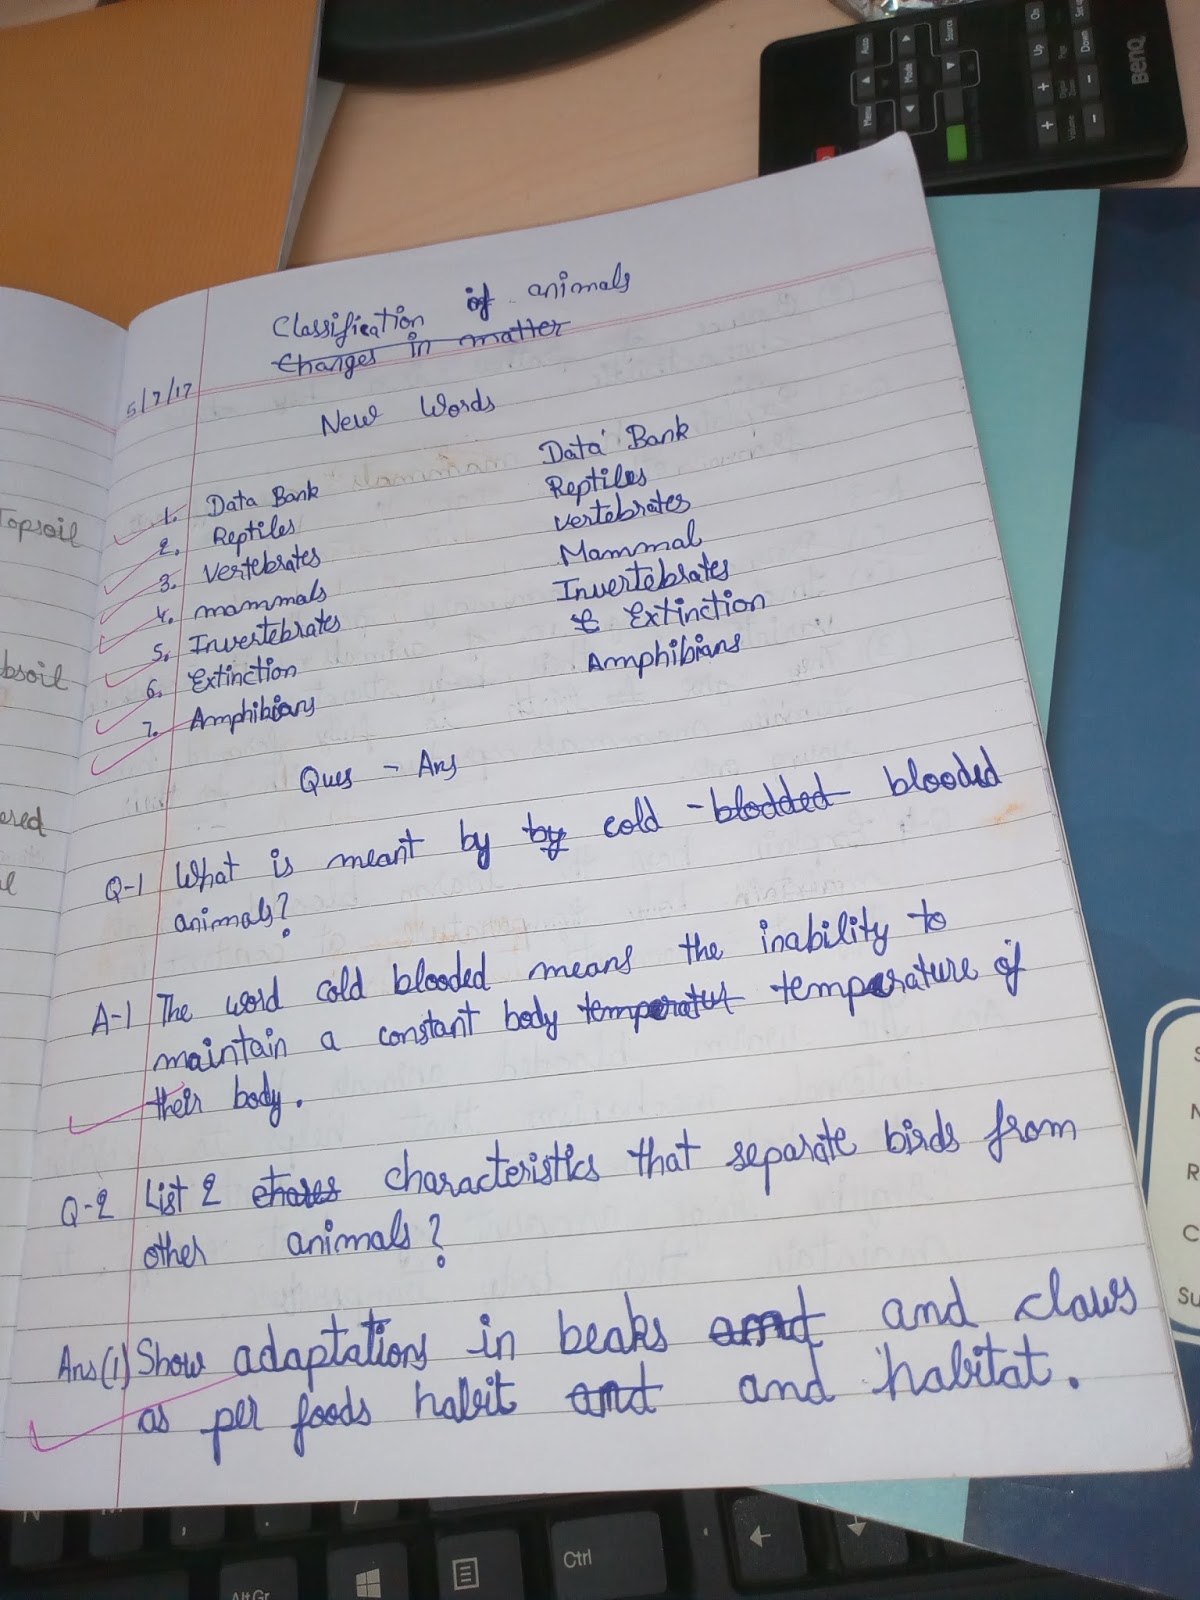 Classification of animals
Changes in matter
5/7/17
New Words
1. Data Bank Data Bank
2. Reptiles Reptiles
3. Vertebrates Vertebrates
4. mammals Mammal
5. Invertebrates Invertebrates
6. Extinction E Extinction
7. Amphibians Amphibians
Ques - Ans
Q-1 What is meant by by cold - blodded blooded
animals?
A-1 The word cold blooded means the inability to
maintain a constant body temperatut temperature of
their body.
Q-2 List 2 characteristics that separate birds from
other animals?
Ans (1) Show adaptations in beaks and and claws
as per foods habit and and habitat.
Topsoil
bsoil
ered
BenQ
Menu
Auto
Mode
Source
Volume
Digital Zoom
Page
Up
Down
On
+ +
- -
Ctrl
AltGr
N
M
S
N
R
C
Su